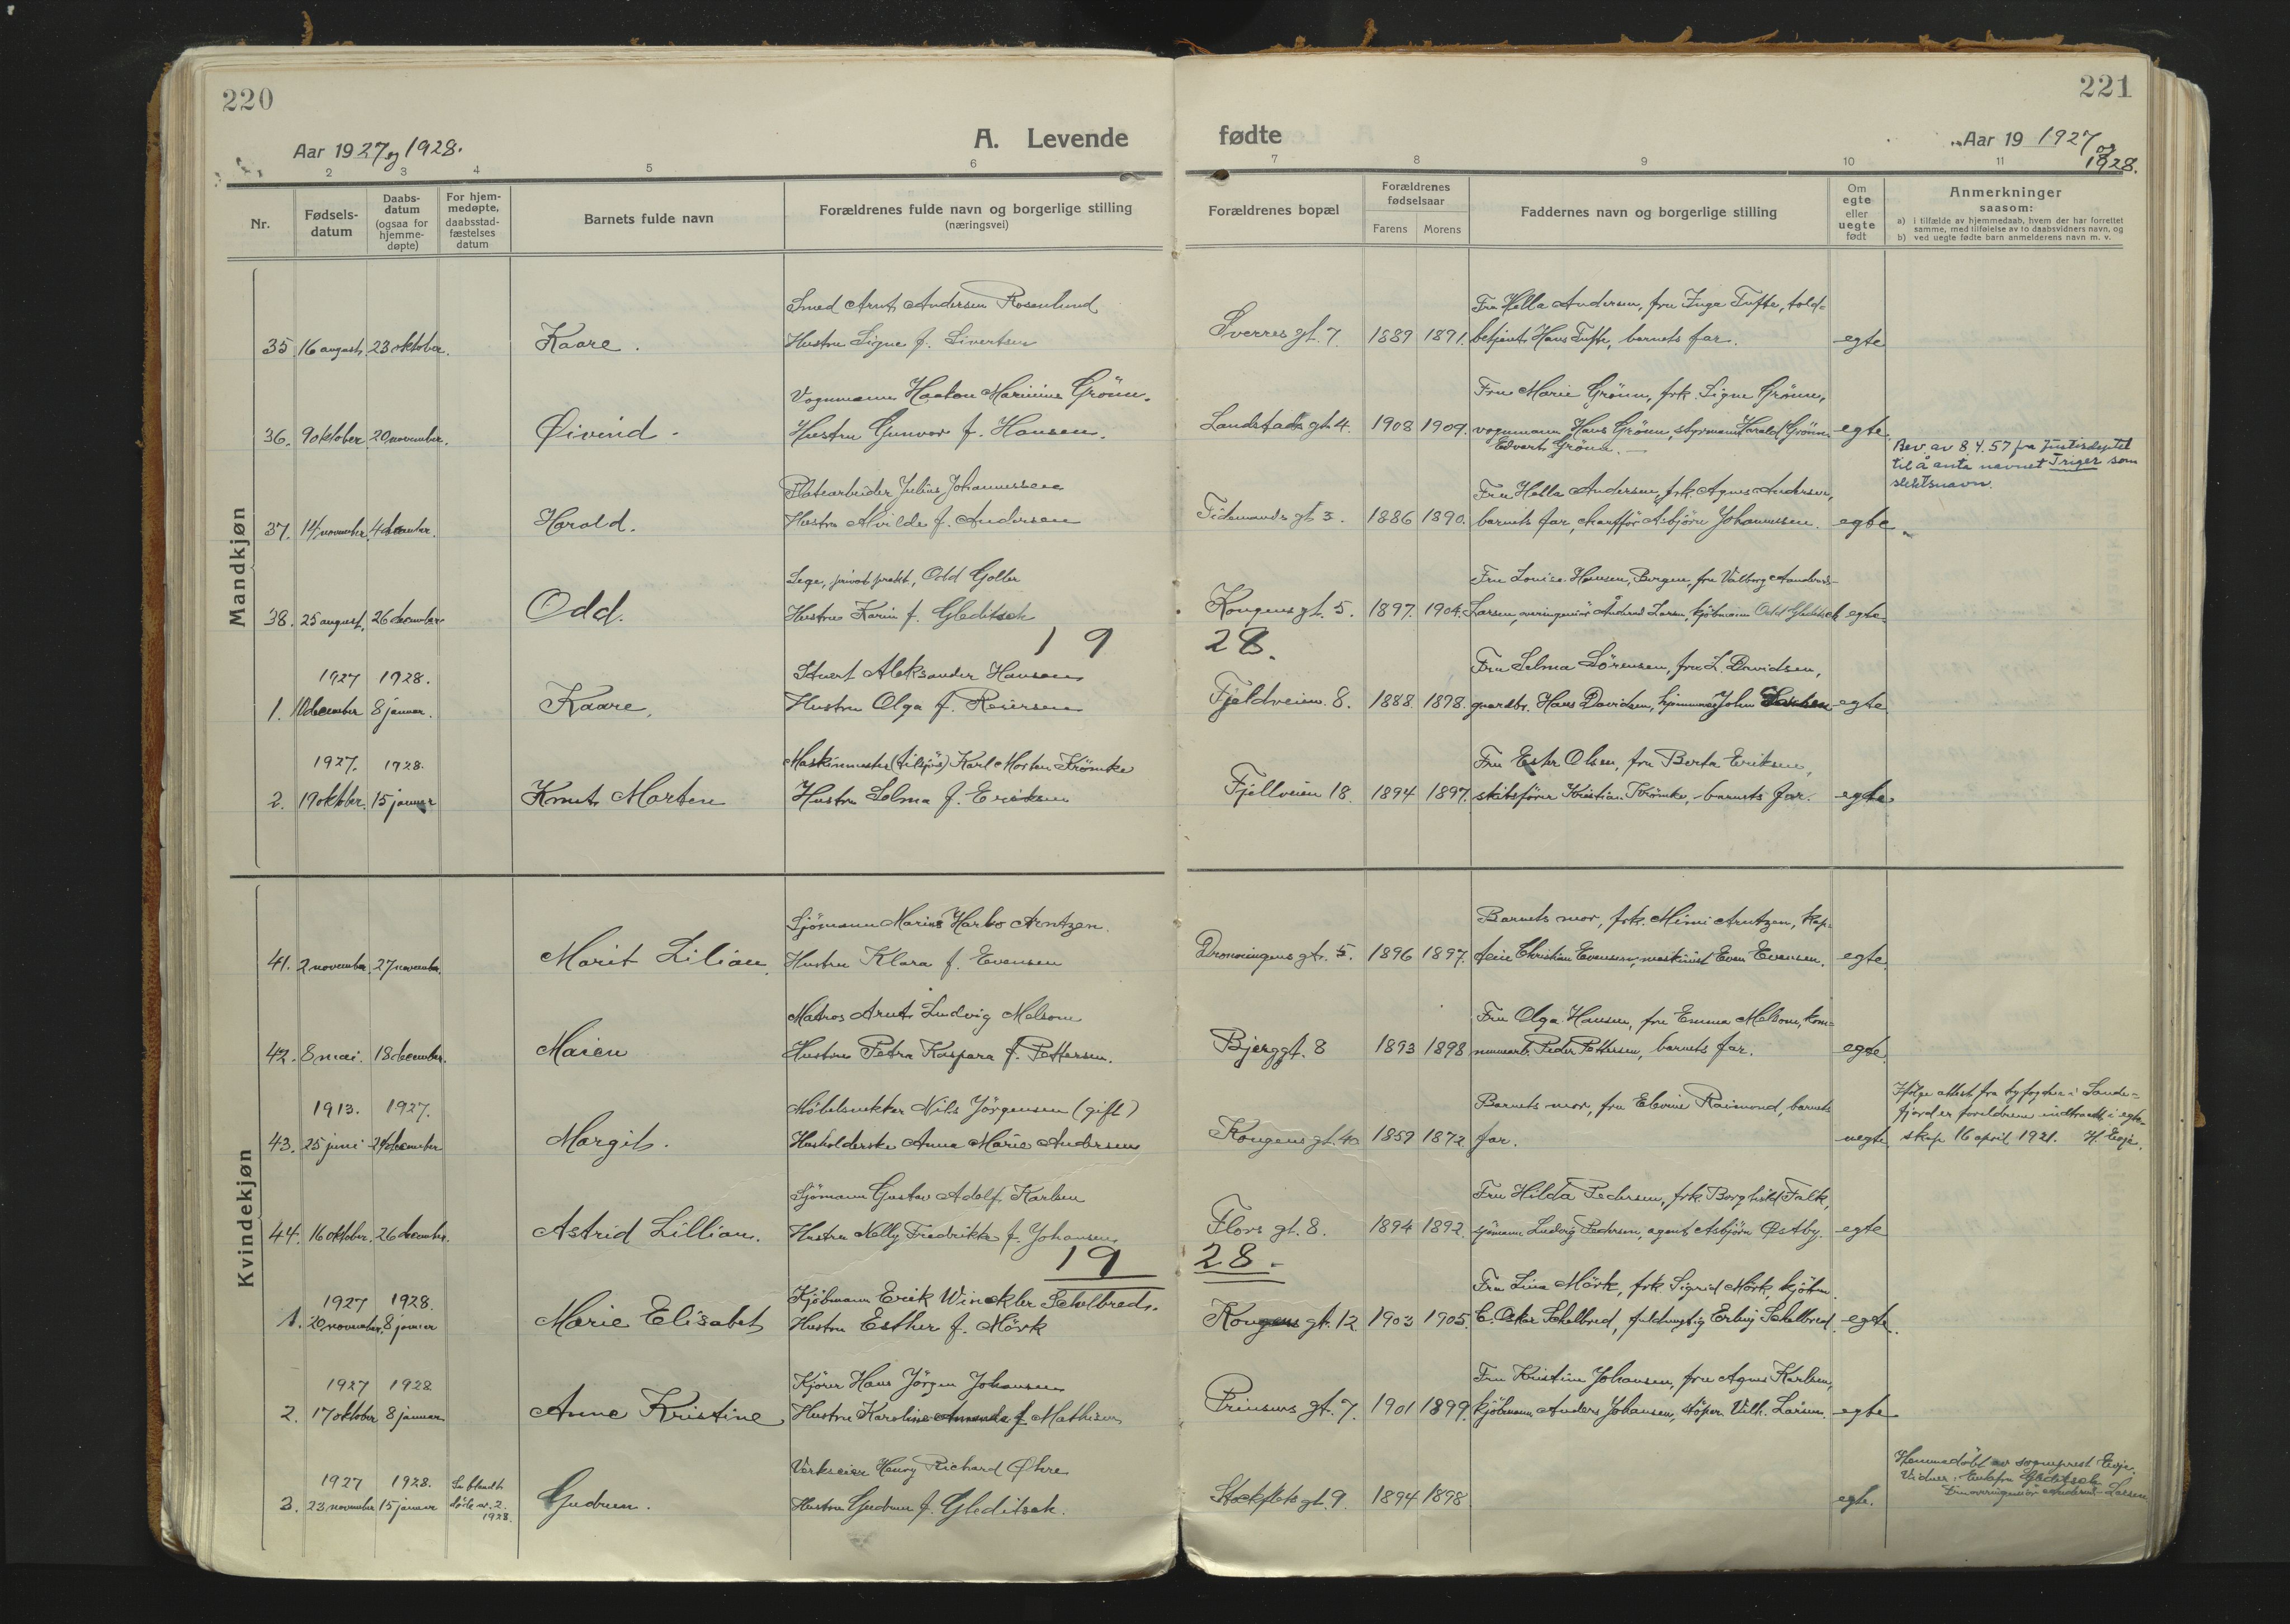 220
Aar 1927 og 1928.
A. Levende
2 3 4 5 6
Nr.
Fødsels-
datum
Daabs-
datum
(ogsaa for
hjemme-
døpte)
For hjem-
medøpte,
daabsstad-
fæstelses
datum
Barnets fulde navn
Forældrenes fulde navn og borgerlige stilling
(næringsvei)
Mandkjøn
Smed Arnt Andersen Rosenlund
35. 16 august. 23 oktober. Kaare. Hustru Signe f. Sivertsen
Vognmann Haakon Marinius Grönn.
36. 9 oktober 20 november. Øivind. Hustru Gunvor f. Hansen.
Julius Johannessen
37. 14 november. 4 december. Harald. Hustru Alvilde f. Andersen
Lege, privat prakt, Odd Goller
38. 25 august. 26 december. Odd. Hustru Karin f. Gleditsch
19
1927 1928. Stuert Aleksander Hansen
1. december 8 januar. Kaare. Hustru Olga f. Reiersen
1927. 1928. Maskinmester (tilsjös) Karl Morten Krömke
2. 19 oktober. 15 januar Knut Morten Hustru Selma f. Eriksen
Kvindekjøn
Sjömann Marius Harbo Arntzen.
41. 2 november. 27 november. Marit Lilian. Hustru Klara f. Evensen
Matros Arnt Ludvig Melsom
42. 8 mai. 18 december. Maien Hustru Petra Kaspara f. Pettersen.
1913. 1927. Möbelsnekker Nils Jörgensen (gift)
43. 25 juni december Margit. Husholderske Anna Marie Andersen
Sjömann Gustav Adolf Karlsen
44. 16 oktober. 26 december. Astrid Lillian. Hustru Nelly Fredrikke f. Johansen
19
1927 1928. Kjöbmann Erik Winckler Schelbred.
1. 20 november. 8 januar Marie Elisabet Hustru Esther f. Mörk
1927 1928 Kjörer Hans Jörgen Johansen
2. 17 oktober 8 januar Anne Kristine Hustru Karoline Amanda f. Mathisen
1927 1928. Se blandt Verkseier Henry Richard Øhre
3. 23 november 15 januar döde nr. 2. 1928. Gudrun. Hustru Gudrun f. Gleditsch.
221
fødte
Aar 19 1927 og
1928.
7 8 9 10 11
Forældrenes bopæl
Forældrenes
fødselsaar
Farens Morens
Faddernes navn og borgerlige stilling
Om
egte
eller
uegte
født
Anmerkninger
saasom:
a) i tilfælde av hjemmedaab, hvem der har forrettet
samme, med tilføielse av to daabsvidners navn, og
b) ved uegte fødte barn anmelderens navn m. v.
Fru Hella Andersen, fru Inga Tufte, told-
Sverres gt. 7. 1889 1891. betjent Hans Tufte, barnets far. egte
Fru Marie Grönn, frk. Signe Grönn,
Landstads gt. 4. 1908 1909. vognmann Hans Grönn, styrmann Harald Grönn egte.
Edvart Grönn.
Bev. av 8.4.57 fra Justisdeptet
til å anta navnet Triger som
slektsnavn.
Fru Hella Andersen, frk. Agnes Andersen,
Tidemands gt. 3. 1886 1890. barnets far, chaufför Asbjörn Johannessen. egte
Fru Louise Hansen, Bergen, fru Valborg Anderud-
Kongens gt. 5. 1897. 1904. Larsen, overingeniör Anderud Larsen, kjöbmann Odd Gleditsch egte.
28.
Fru Selma Sörensen, fru L. Davidsen,
Fjeldveien. 8. 1888 1898. gaardbr. Hans Davidsen, John egte.
Fru Ester Olsen, fru Berta Eriksen,
Fjellveien 18. 1894 1897. skibsförer Kristian Krömke, barnets far. egte.
Barnets mor, frk. Mimi Arntzen, kap-
Dronningens gt. 5. 1896 1897. tein Christian Evensen, maskinist Even Evensen. egte
Fru Olga Hansen, fru Emma Melsom, kom-
Bjerggt. 8 1893 1898 munearb. Peder Pettersen, barnets far. egte
Barnets mor, fru Elevine Raimond, barnets
Kongens gt. 40 1859 1872. far. uegte
Ifölge attest fra byfogden i Sande-
fjord er foreldrene indtraadt i egte-
skap 16 april 1921. H. Evje.
Fru Hilda Pedersen, frk. Borghild Falk,
Flors gt. 8. 1894 1892. sjömann Ludvig Pedersen, agent Asbjörn Østby. egte
28.
Fru Lina Mörk, frk. Sigrid Mörk, kjöbm.
Kongens gt. 12 1903 1905. C. Oskar Schelbred, fuldmegtig Erling Schelbred egte.
Fru Kristine Johansen, fru Agnes Karlsen,
Prinsens gt. 7. 1901 1899. kjöbmann Anders Johansen, stöper Vilh. Larsen. egte
Hjemmedöbt av sogneprest Evje.
Vidner: Enkefru Gleditsch
Fru overingeniör Anderud-Larsen
Stockflets gt. 9. 1894 1898 egte.